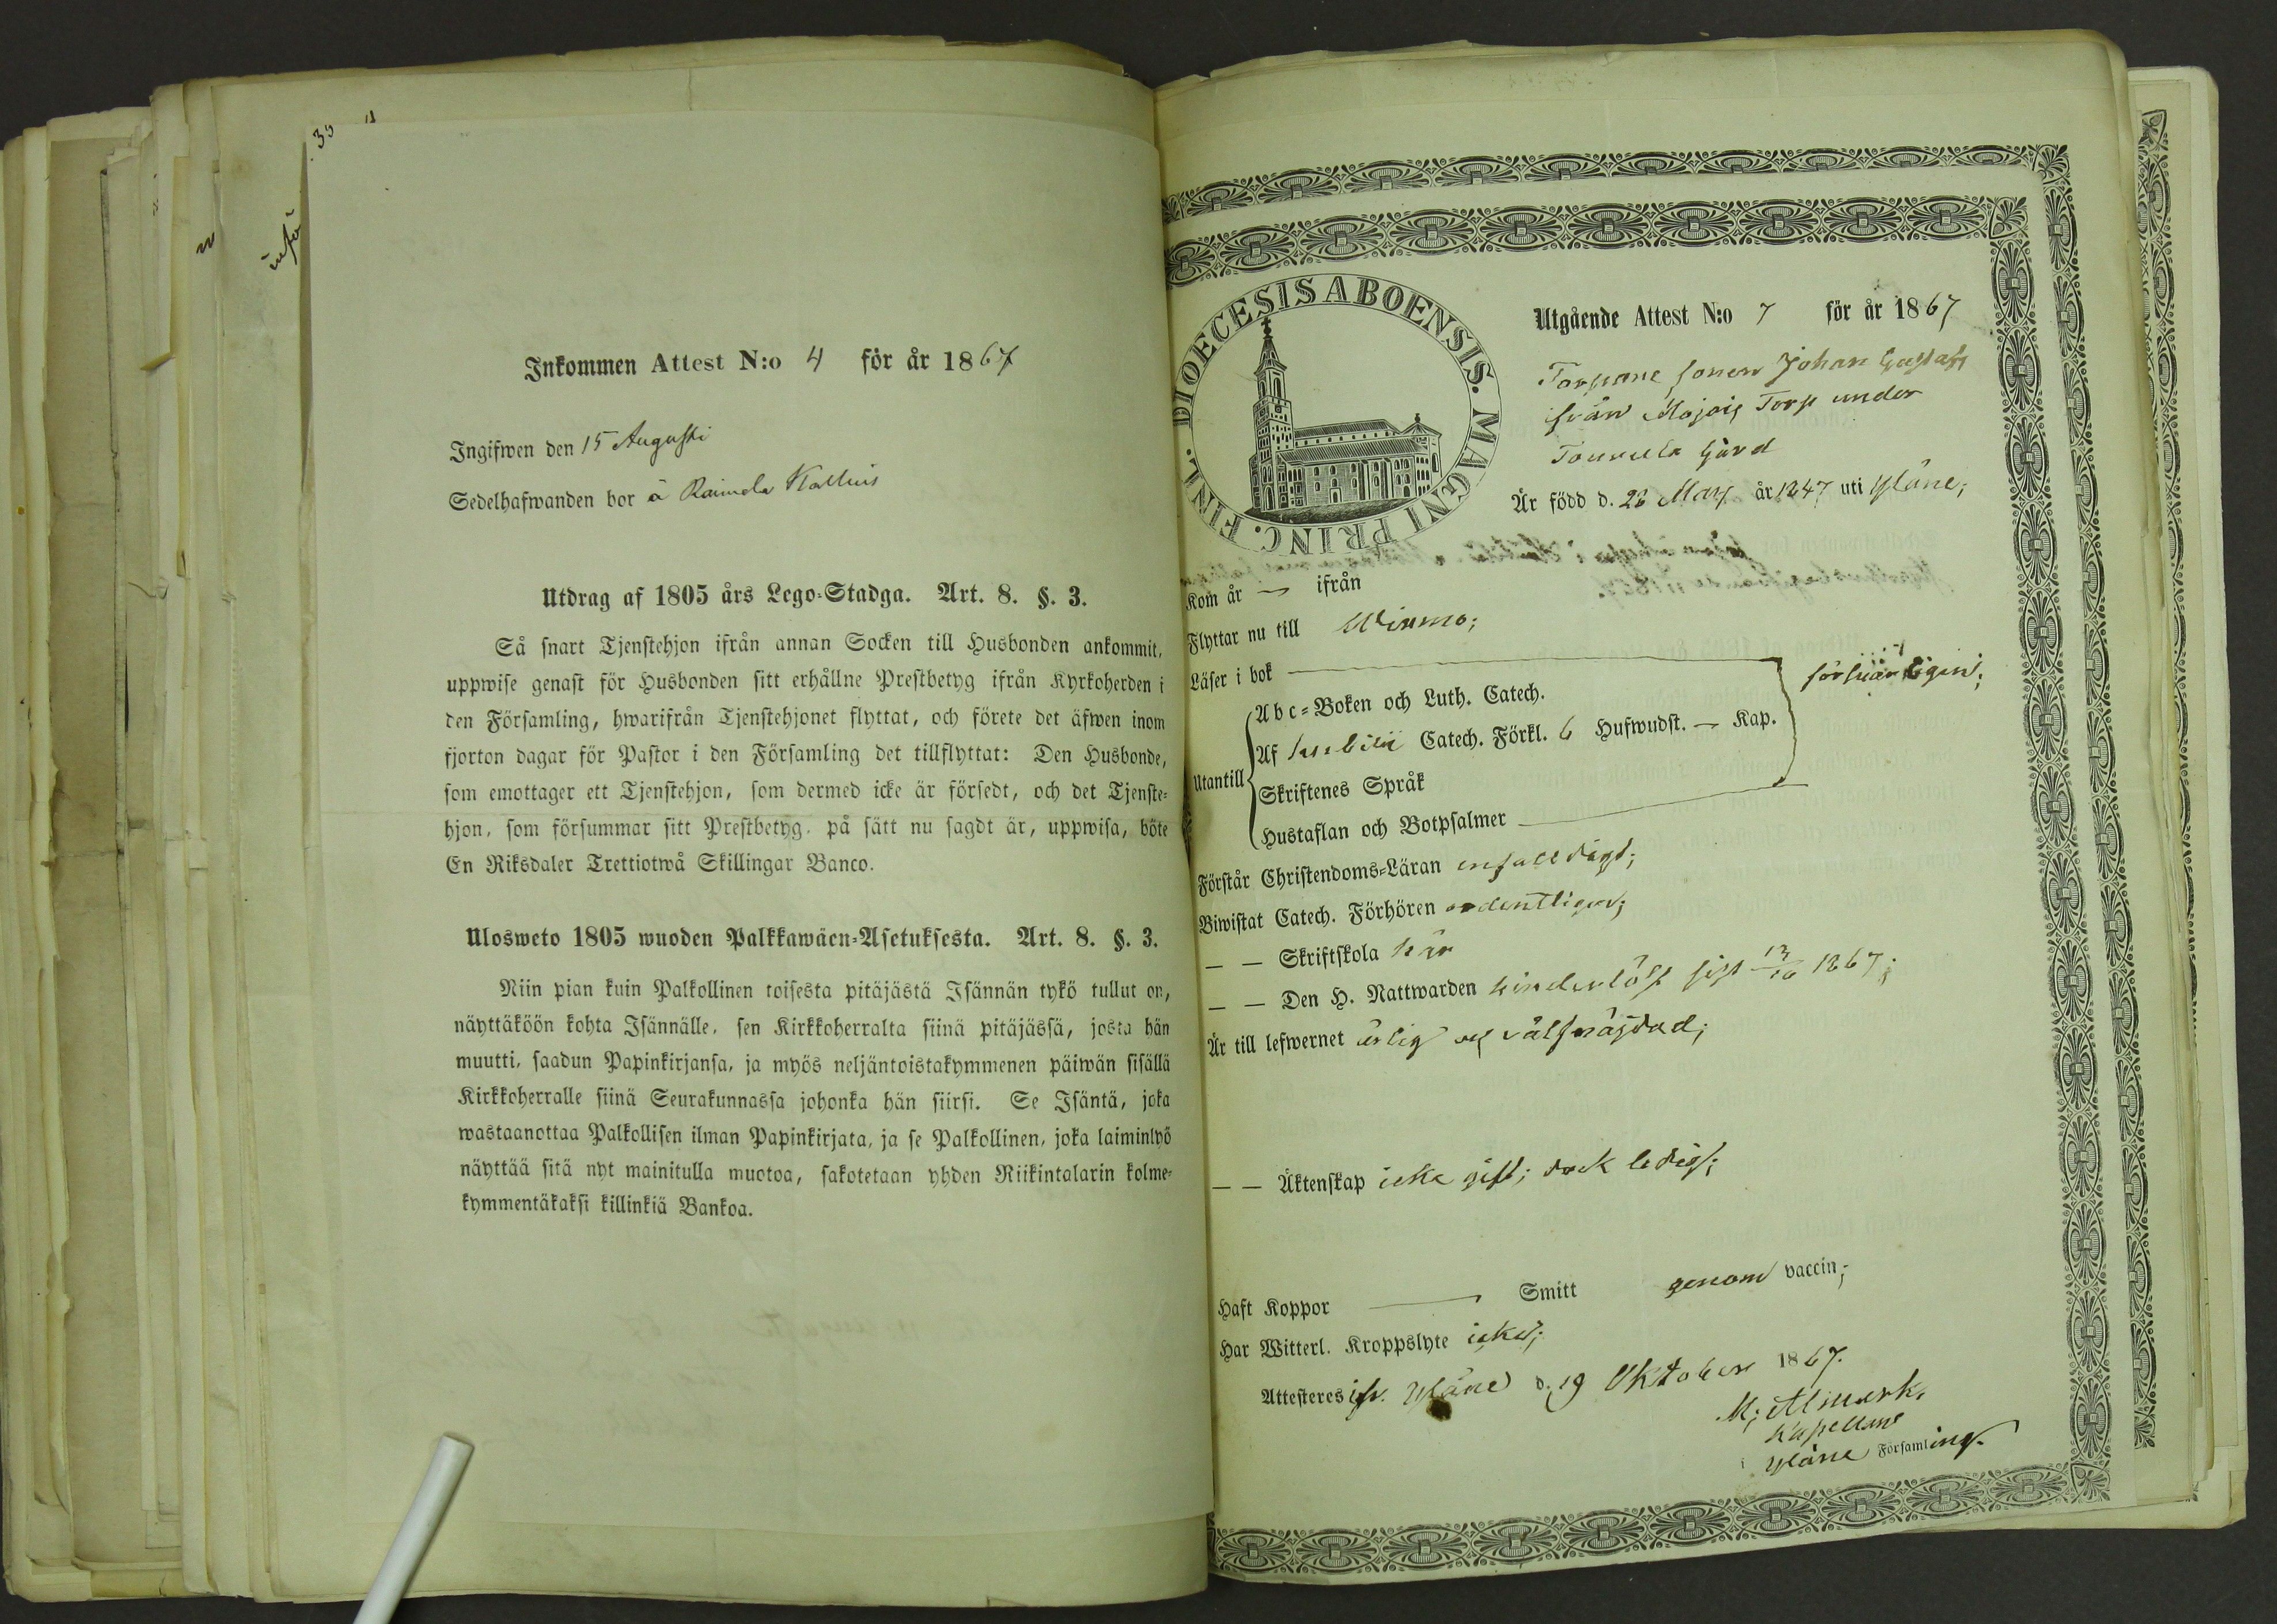 Inkommen Attest N:o 4 för år 1867
Ingifwen den 15 Augusti
Sedelhafwanden bor å Raimela Kallius
Utdrag af 1805 års Lego-Stadga. Art. 8. §. 3.
Så snart Tjenstehjon ifrån annan Socken till Husbonden ankommit,
uppwise genast för Husbonden sitt erhållne Prestbetyg ifrån Kyrkoherden i
den Församling, hwarifrån Tjenstehjonet flyttat, och förete det äfwen inom
fjorton dagar för Pastor i den Församling det tillflyttat: Den Husbonde,
som emottager ett Tjenstehjon, som dermed icke är försedt, och det Tjenste-
hjon, som försummar sitt Prestbetyg, på sätt nu sagdt är, uppwisa, böte
En Riksdaler Trettiotwå Skillingar Banco.
Ulosweto 1805 wuoden Palkkawäen-Asetuksesta. Art. 8. §. 3.
Niin pian kuin Palkollinen toisesta pitäjästä Isännän tykö tullut on,
näyttäköön kohta Isännälle, sen Kirkkoherralta siinä pitäjässä, josta hän
muutti, saadun Papinkirjansa, ja myös neljäntoistakymmenen päiwän sisällä
Kirkkoherralle siinä Seurakunnassa johonka hän siirsi. Se Isäntä, joka
wastaanottaa Palkollisen ilman Papinkirjata, ja se Palkollinen, joka laiminlyö
näyttää sitä nyt mainitulla muotoa, sakotetaan yhden Riikintalarin kolme-
kymmentäkaksi killinkiä Bankoa.
DIOECESIS ABOENSIS. MAGNI PRINC. FINL.
Utgående Attest N:o 7 för år 1867
Torpare sonen Johan Gustaf
från Mojois Torp under
Tourula Gård
Är född d. 28 Mars år 1847 uti Yläne;
Kom år — ifrån
Flyttar nu till Wirmo;
Läser i bok
försvarligen;
Abc-Boken och Luth. Catech.
Af Svebilii Catech. Förkl. 6 Hufwudst. — Kap.
Utantill
Skriftenes Språk
Hustaflan och Botpsalmer
Förstår Christendoms-Läran enfalldigt;
Biwistat Catech. Förhören ordentligen;
— — Skriftskola här
— — Den H. Nattwarden hinderlöst sist 13/10 1867;
Är till lefwernet ärlig och välfräjdad;
— — Äktenskap icke gift; dock ledig;
Haft Koppor — Smitt genom vaccin;
Har Witterl. Kroppslyte icke;
Attesteras ifr. Yläne d. 19 Oktober 1867.
M. Almark,
Kapellan
i Yläne Församling.